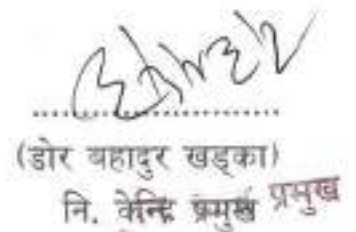 (डोर बहादुर खड्का)
नि. केन्द्रि प्रमुख प्रमुख